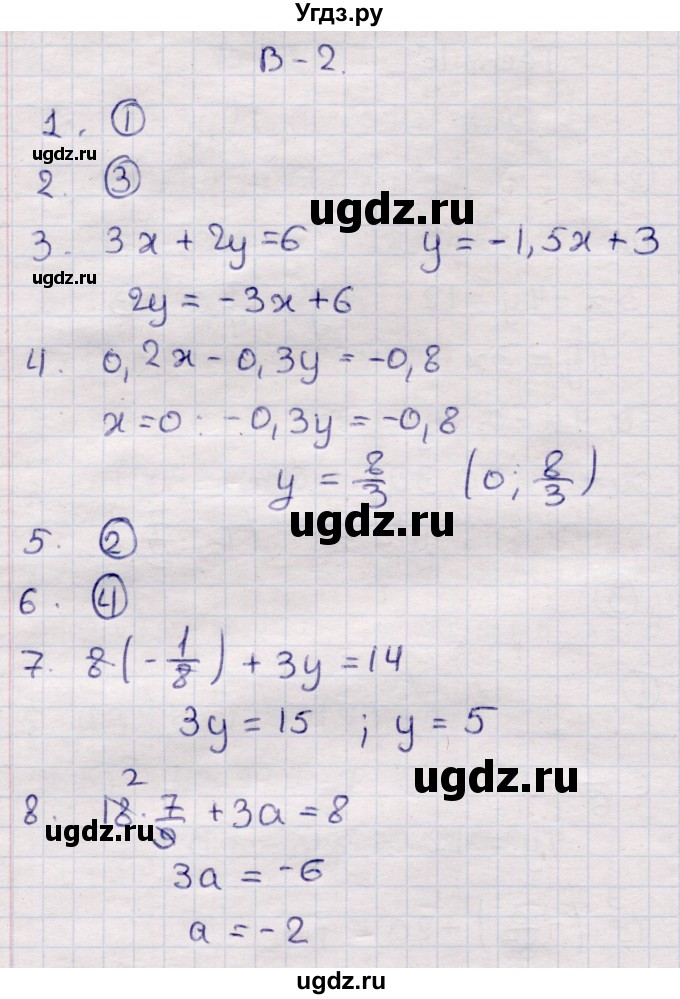 Угдз.ру
В-2.
1. ①
ugdz.ru
2. ③
ugdz.ru
3. 3x + 2y = 6 y = -1,5x + 3
ugdz.ru
2y = -3x + 6
4. 0,2x - 0,3y = -0,8
x = 0: -0,3y = -0,8
y = 8/3 (0; 8/3)
ugdz.ru
5. ②
6. ④
7. 8(-1/8) + 3y = 14
3y = 15 ; y = 5
ugdz.ru
2
8. 18 · 7/9 + 3a = 8
ugdz.ru
3a = -6
a = -2
ugdz.ru